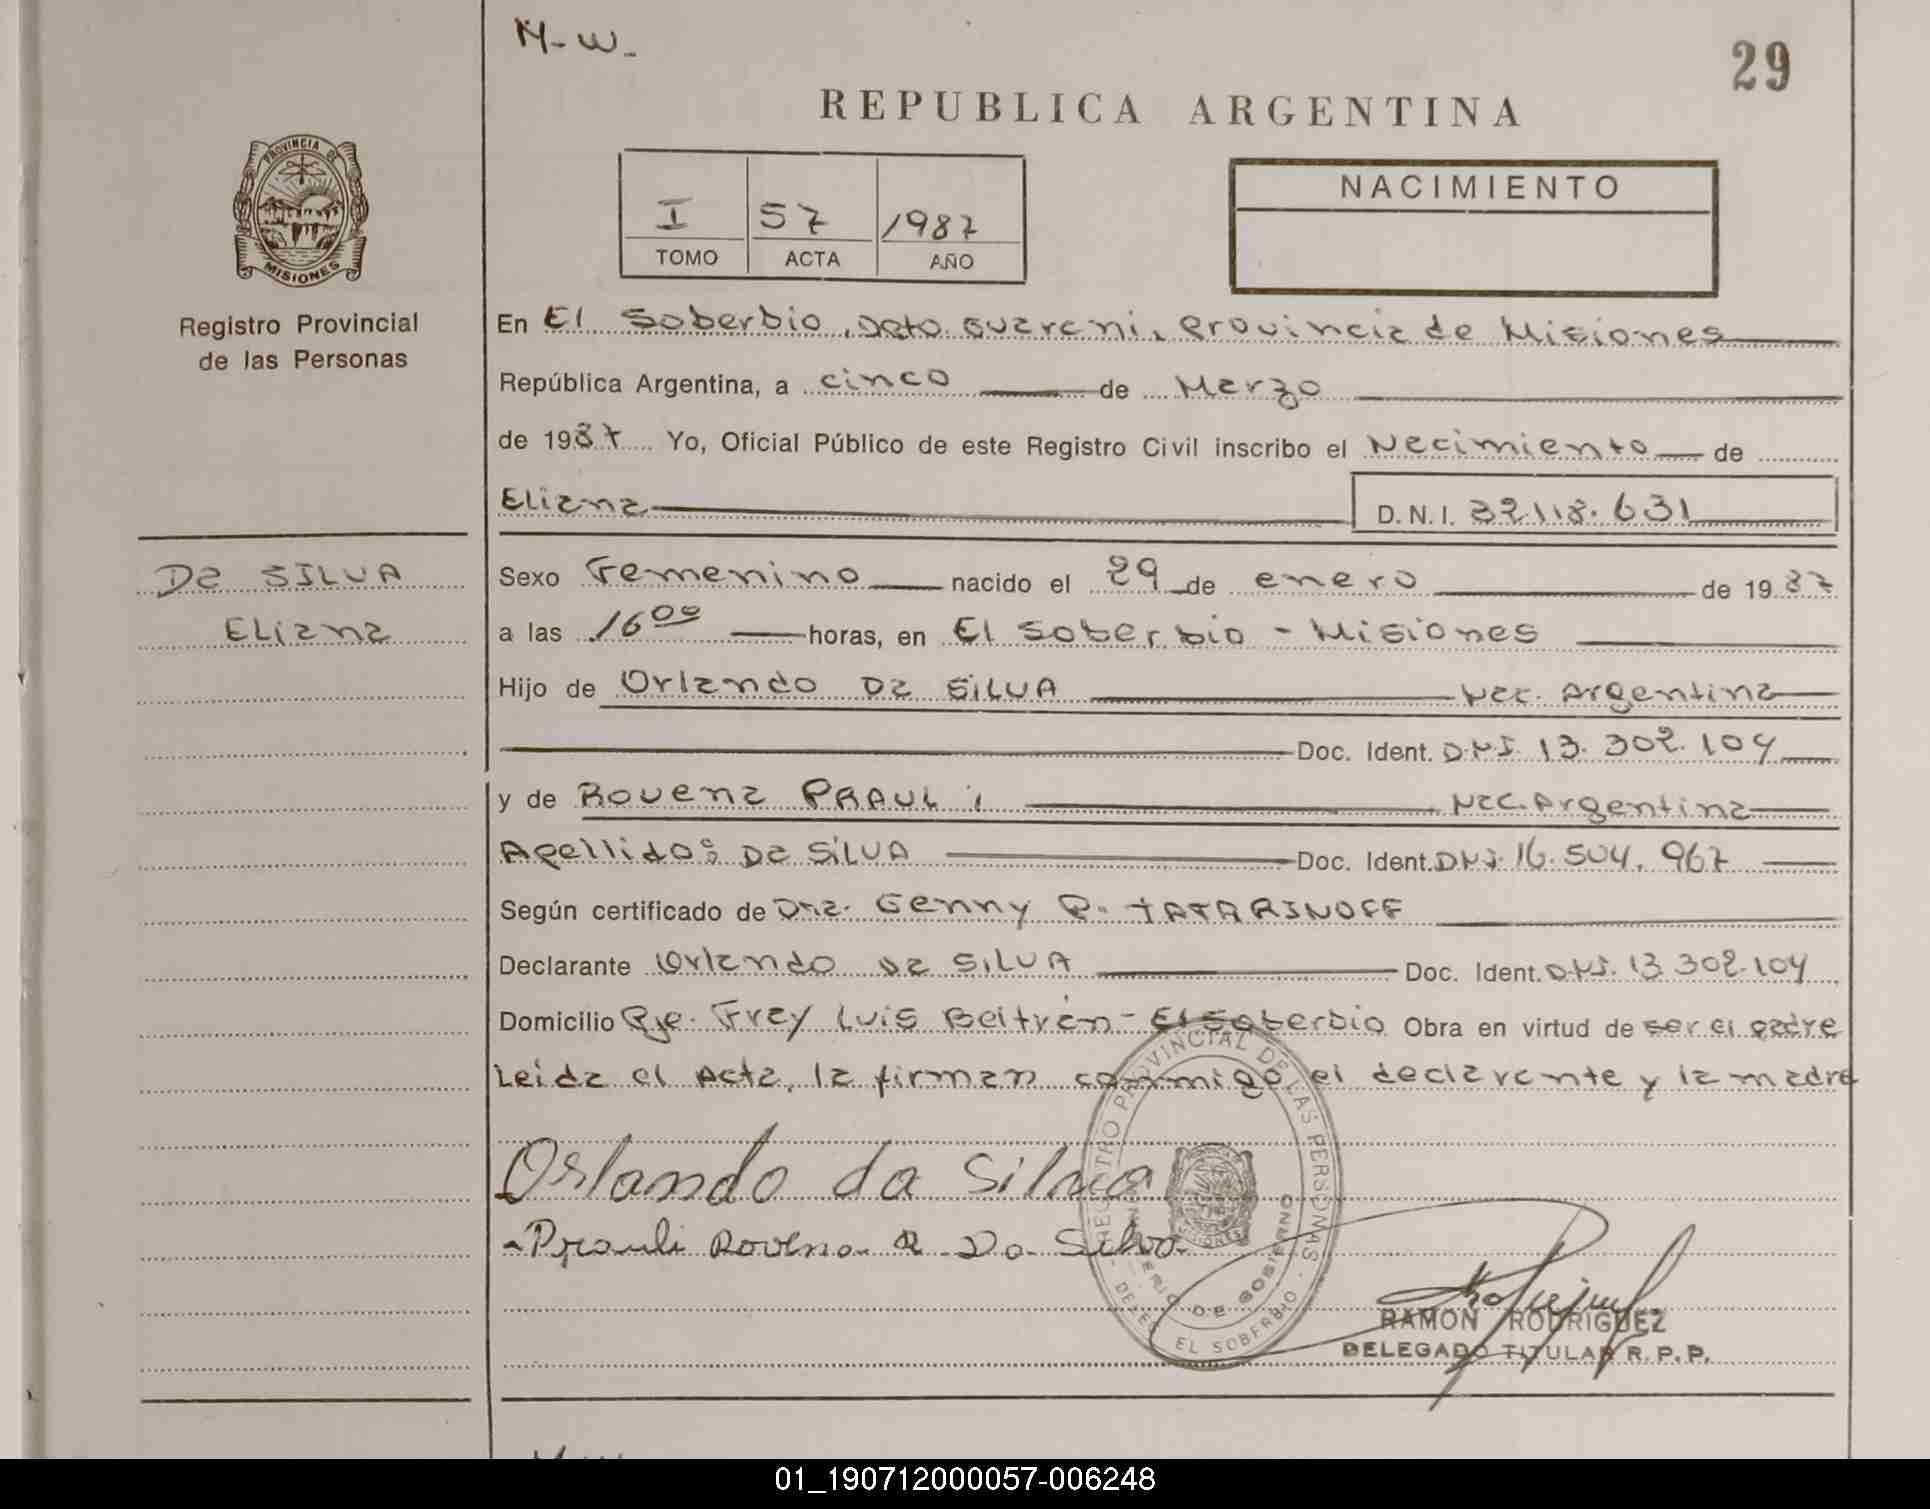 M-W-
29
REPUBLICA ARGENTINA
PROVINCIA DE
MISIONES
Registro Provincial
de las Personas
I 57 1987
TOMO ACTA AÑO
NACIMIENTO
En El Soberbio, Dpto. Guarani, Provincia de Misiones
República Argentina, a cinco de Marzo
de 1987 Yo, Oficial Público de este Registro Civil inscribo el Nacimiento de
Eliana D.N.I. 32.118.631
Da SILVA
Eliana
Sexo Femenino nacido el 29 de enero de 1987
a las 16 00 horas, en El Soberbio - Misiones
Hijo de Orlando Da SILVA Nac. Argentina
Doc. Ident. DNI. 13.302.104
y de Rovena PRAULI Nac. Argentina
Apellido: Da SILVA Doc. Ident. DNI. 16.504.967
Según certificado de Dra. Genny R. TATARINOFF
Declarante Orlando Da SILVA Doc. Ident. DNI. 13.302.104
Domicilio Pje. Fray Luis Beltrán - El Soberbio Obra en virtud de ser el padre
Leida el Acta, la firman conmigo el declarante y la madre
Orlando da Silva
Prauli Rovena R. Da Silva
REGISTRO PROVINCIAL DE LAS PERSONAS
MINISTERIO DE GOBIERNO
MISIONES
DELEG. EL SOBERBIO
RAMON RODRIGUEZ
DELEGADO TITULAR R.P.P.
01_190712000057-006248